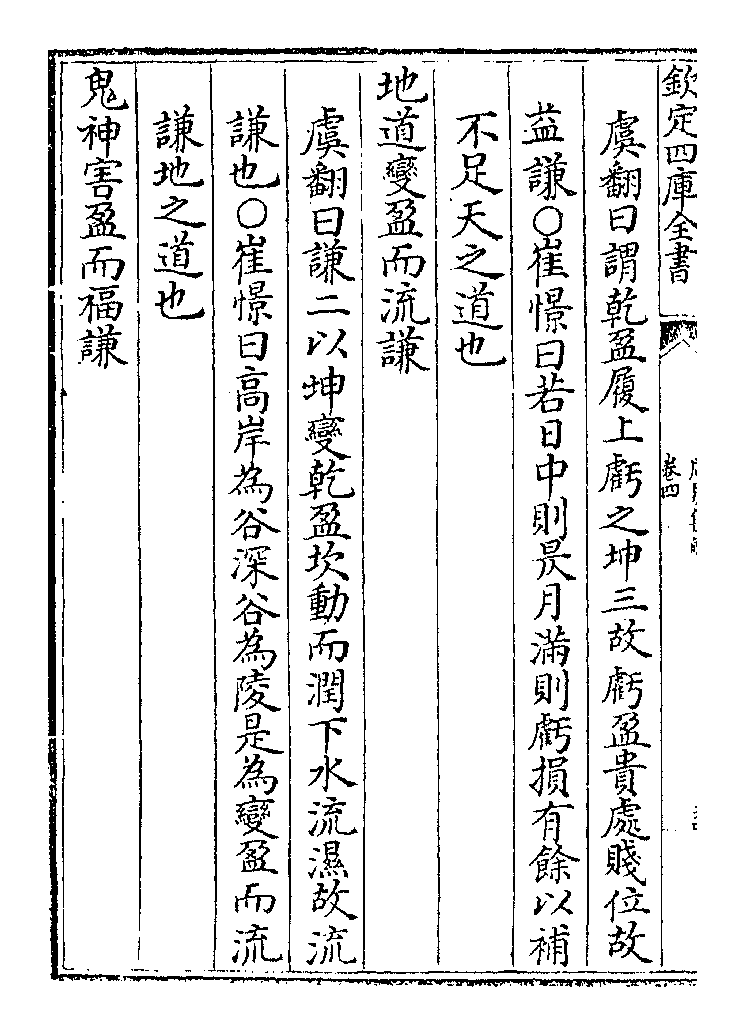 欽定四庫全書
卷四
虞翻曰謂乾盈履上虧之坤三故虧盈貴處賤位故
益謙○崔憬曰若日中則昃月滿則虧損有餘以補
不足天之道也
地道變盈而流謙
虞翻曰謙二以坤變乾盈坎動而潤下水流濕故流
謙也○崔憬曰高岸為谷深谷為陵是為變盈而流
謙地之道也
鬼神害盈而福謙